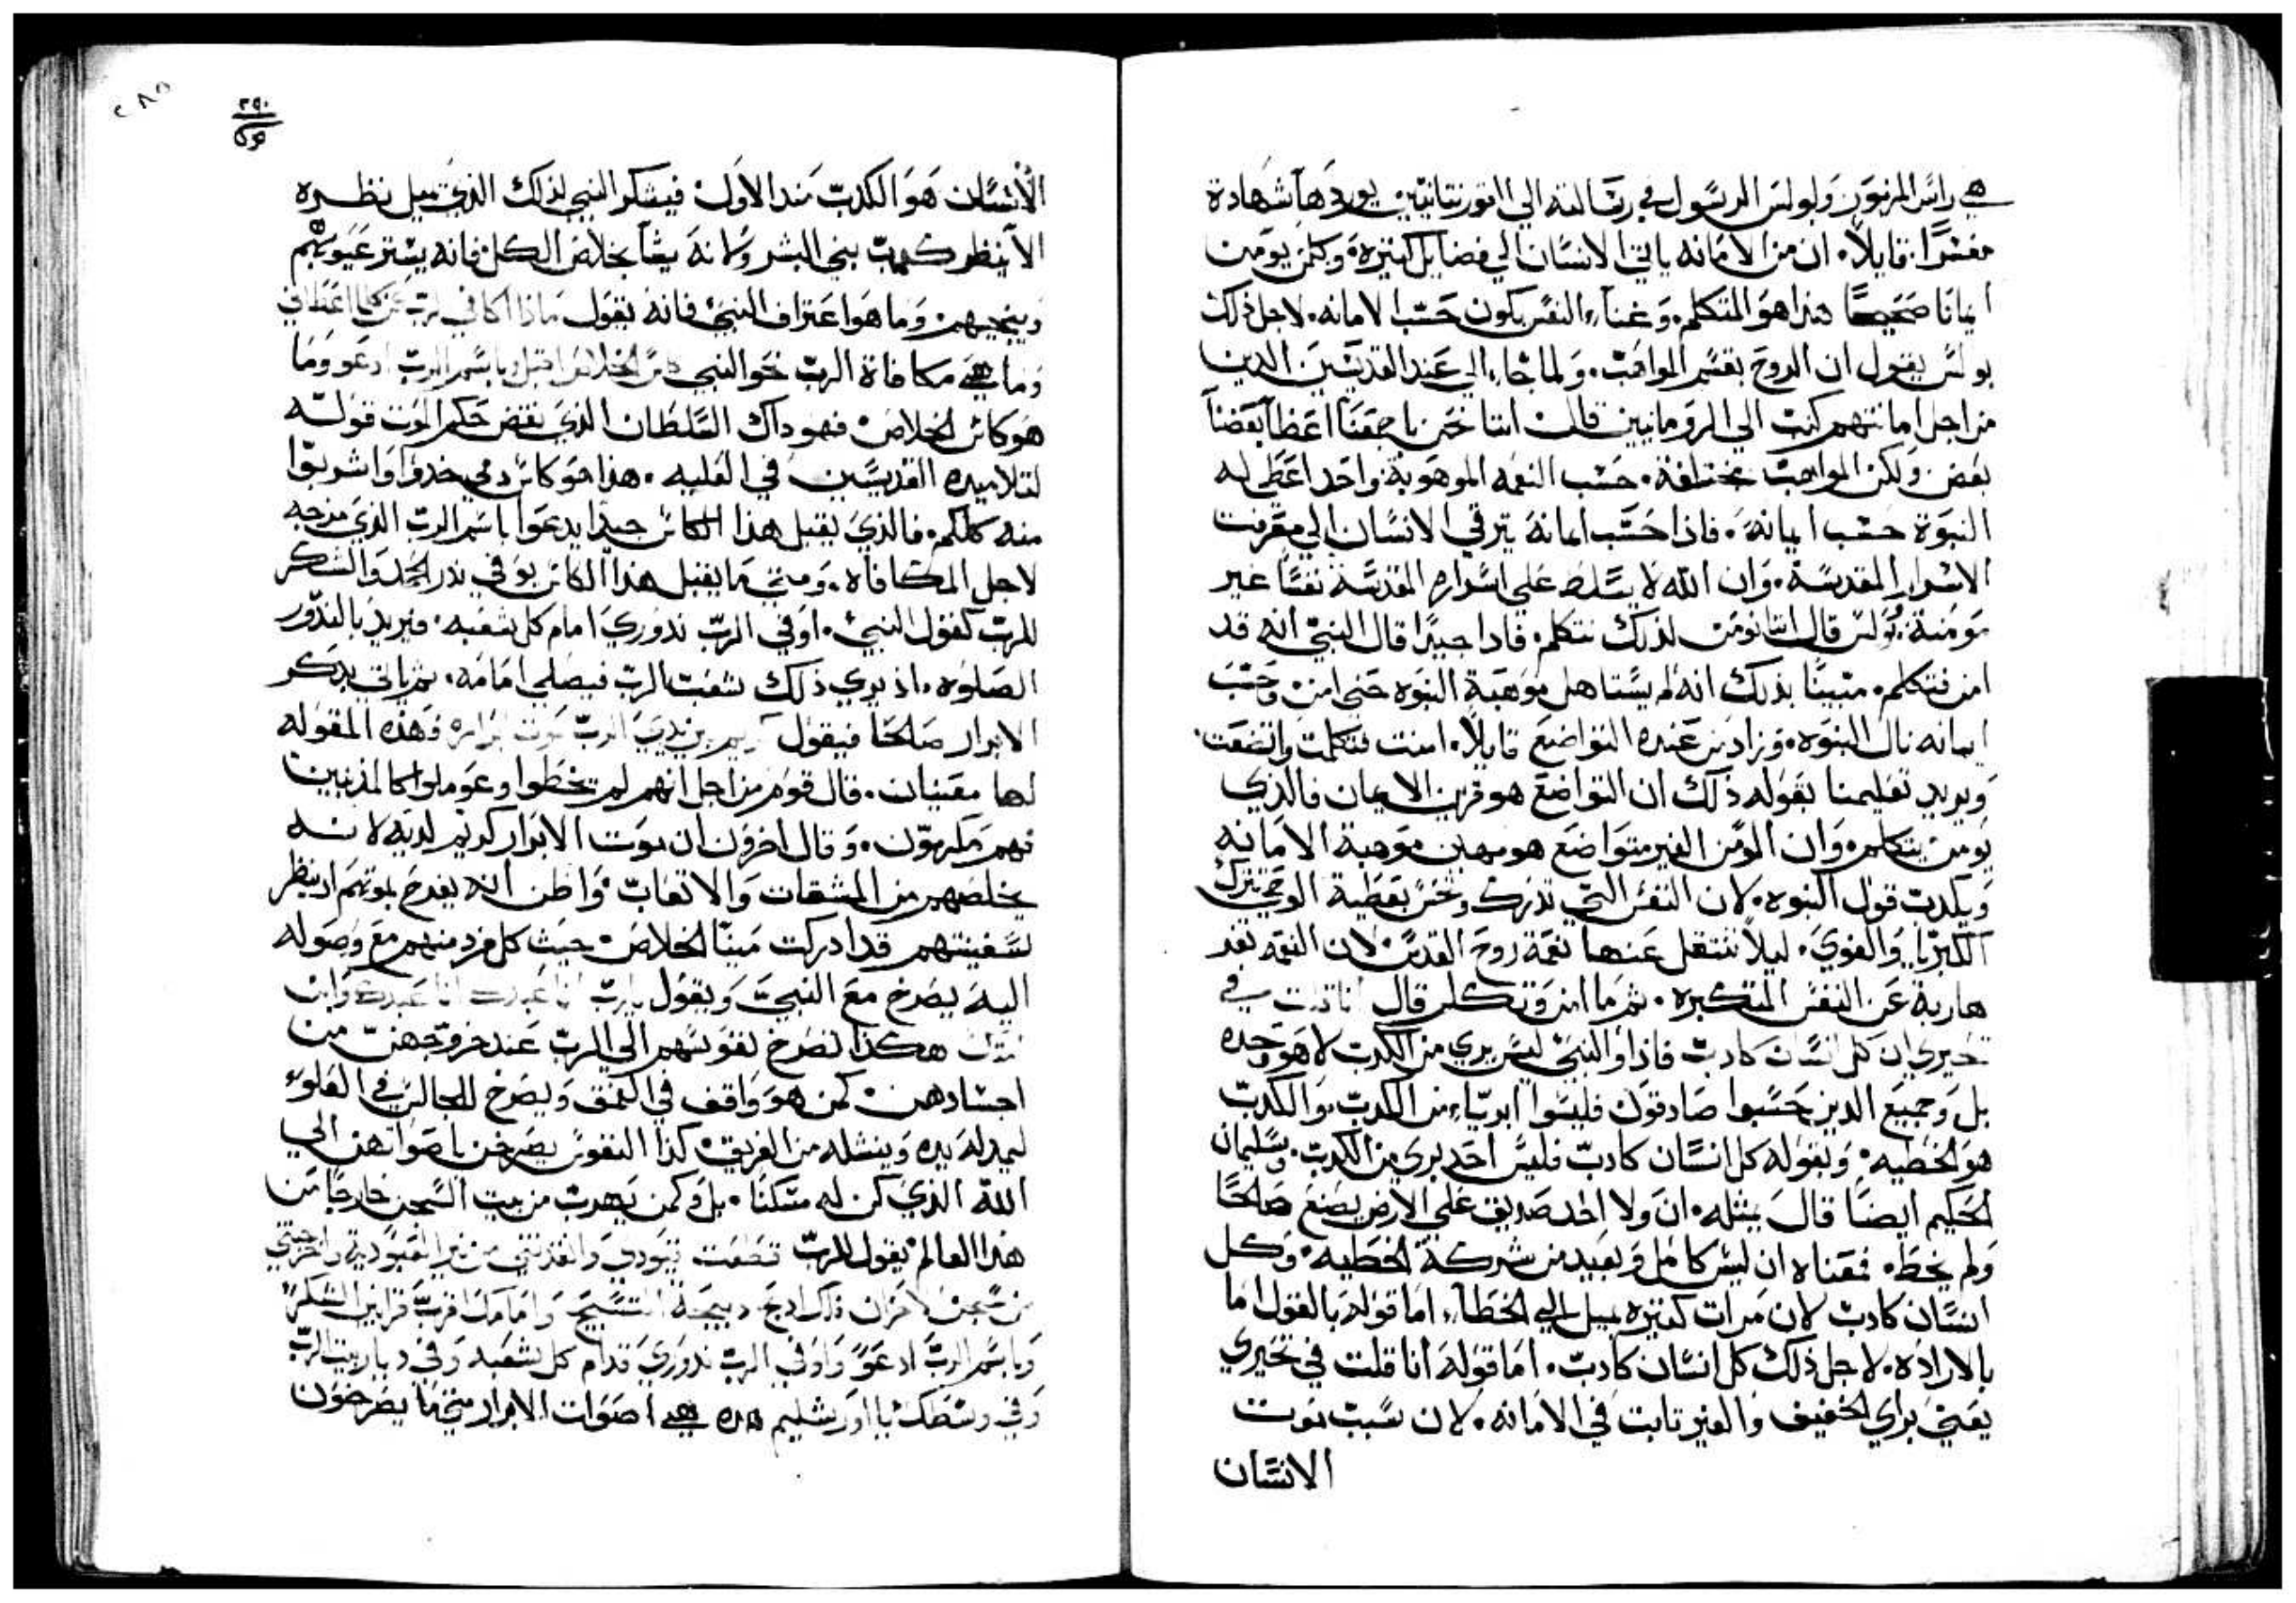 هي راس المزمور ولولس الرسول في رسالته الي القورنتانيين يوردها شهادة
مفسرا قايلا. ان من الامانه ياتي الانسان الي فضايل كتيره وكلمن يومن
ايمانا صحيحا هذا هو المتكلم. وغناء النفس يكون حسب الامانه. لاجل ذلك
بولس يقول ان الروح يقسم المواهب. ولما جاء الي عند القديسين الدين
من اجل امانتهم كتب الي الرومانيين قلت اننا نحن باجمعنا اعضا بعضنا
بعض ولكن المواهب مختلفة. حسب النعمه الموهوبة. واحد اعطي له
النبوة حسب ايمانه. فاذا حسب امانة يترقي الانسان الي معرفت
الاسرار المقدسة. وان الله لا يسلط علي اسراره المقدسة نفسا غير
مومنة. بولس قال اننا نومن لذلك نتكلم. فادا جيدا قال النبي انه قد
امن فتكلم. مبينا بذلك انه لم يستاهل موهبة النبوه حتي امن. وحسب
ايمانه نال النبوه. وزاد من عنده التواضع قايلا. امنت فتكلمت واتضعت.
ويريد تعليمنا بقوله ذلك ان التواضع هو قرين الايمان فالذي
يومن يتكلم. وان المومن الغير متواضع هو مهين موهبة الامانه
ويكدب قول النبوه. لان النفس التي تدرك وتحس بعطية الوحي تترك
الكبريا والغوي. ليلا تنتقل عنها نعمة روح القدس لان النعمه تعد
هاربة عن النفس المتكبره. ثم ما امن وتكلم قال انا قلت في
تحيري ان كل انسان كادب فاذا والنبي ليس بري من الكدب لا هو وحده
بل وجميع الدين حسبوا صادقون فليسوا ابرياء من الكدب والكدب
هو الخطيه. وبقوله كل انسان كادب فليس احد بري من الكدب. وسليمان
الحكيم ايضا قال مثله. ان ولا احد صديق علي الارض يصنع صالحا
ولم يخطء فمعناه ان ليس كامل وبعيد من شركة الخطيه. وكل
انسان كادب لان مرات كتيره يميل الي الخطاء. اما قوله بالقول اما
بالاراده. لاجل ذلك كل انسان كادب. اما قوله انا قلت في تحيري
يعني براي الخفيف والغير تابت في الامانه. لان سبب موت
الانسان
٢٩٠
٢٨٥
الانسان هو الكدب مند الاول فيشكر النبي لذاك الذي ميل نظره
الا ينظر كدب بني البشر ولانه يشا بخلاص الكل فانه يستر عيوبهم
وينجيهم. وما هو اعتراف النبي فانه يقول ماذا اكافي الرب عن كلما اعطاني
وما هي مكافاة الرب نحو النبي كاس الخلاص اقبل وباسم الرب ادعو وما
هو كاس الخلاص فهو داك السلطان الذي نقض حكم الموت قوله
لتلاميده القديسين في العليه. هذا هو كاس دمي خدوا واشربوا
منه كلكم. فالذي يقبل هذا الكاس جيدا يدعوا باسم الرب الذي مزجه
لاجل المكافاه. ومتي ما يقبل هذا الكاس يوفي ندر الحمد والشكر
للرب كقول النبي. اوفي الرب ندوري امام كل شعبه. فيريد بالندور
الصلوه. اذ يري ذلك شعب الرب فيصلي امامه. ثم ياتي بدكر
الابرار صالحا فيقول كريم بين يدي الرب موت ابراره فهذه المقوله
لها معنيان. قال قوم من اجل انهم لم يخطوا وعوملوا كالمذنبين
فهم مكرمون. وقال اخرون ان موت الابرار كريم لديه لانه
يخلصهم من المشقات والاتعاب. واظن انه يفرح بموتهم اد ينظر
سفينتهم قد ادركت مينا الخلاص. حيث كل فرد منهم مع وصوله
اليه يصرخ مع النبي ويقول يارب انا عبدك انا عبدك وابن
امتك هكذا تصرخ نفوسهم الي الرب عند خروجهن من
اجسادهن. كمن هو واقف في العمق ويصرخ للجالس في العلو
ليمد له يده وينشله من الغريق. كذا النفوس يصرخن باصواتهن الي
الله الذي كن له مسكنا. بل وكمن يهرب من بيت السجن خارجا من
هذا العالم يقول للرب قطعت قيودي وانقدتني من نير العبودية واخرجتني
من سجن الاحزان فلك ادبح دبيحة التسبيح وامامك اقرب قرابين الشكر
وباسم الرب ادعو واوفي الرب ندوري قدام كل شعبه وفي ديار بيت الرب
وفي وسطك يا اورشليم هده هي اصوات الابرار متي ما يصرخون